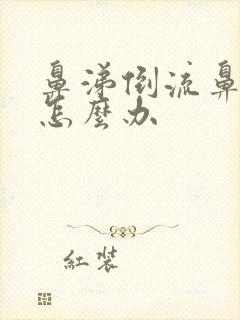 鼻涕倒流鼻
怎麼办
紅装